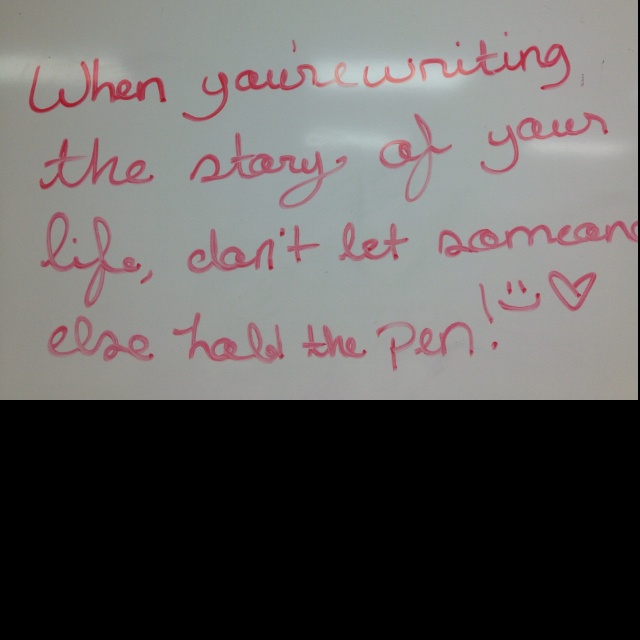 When you're writing
the story of your
life, don't let someone
else hold the pen! :) ♡